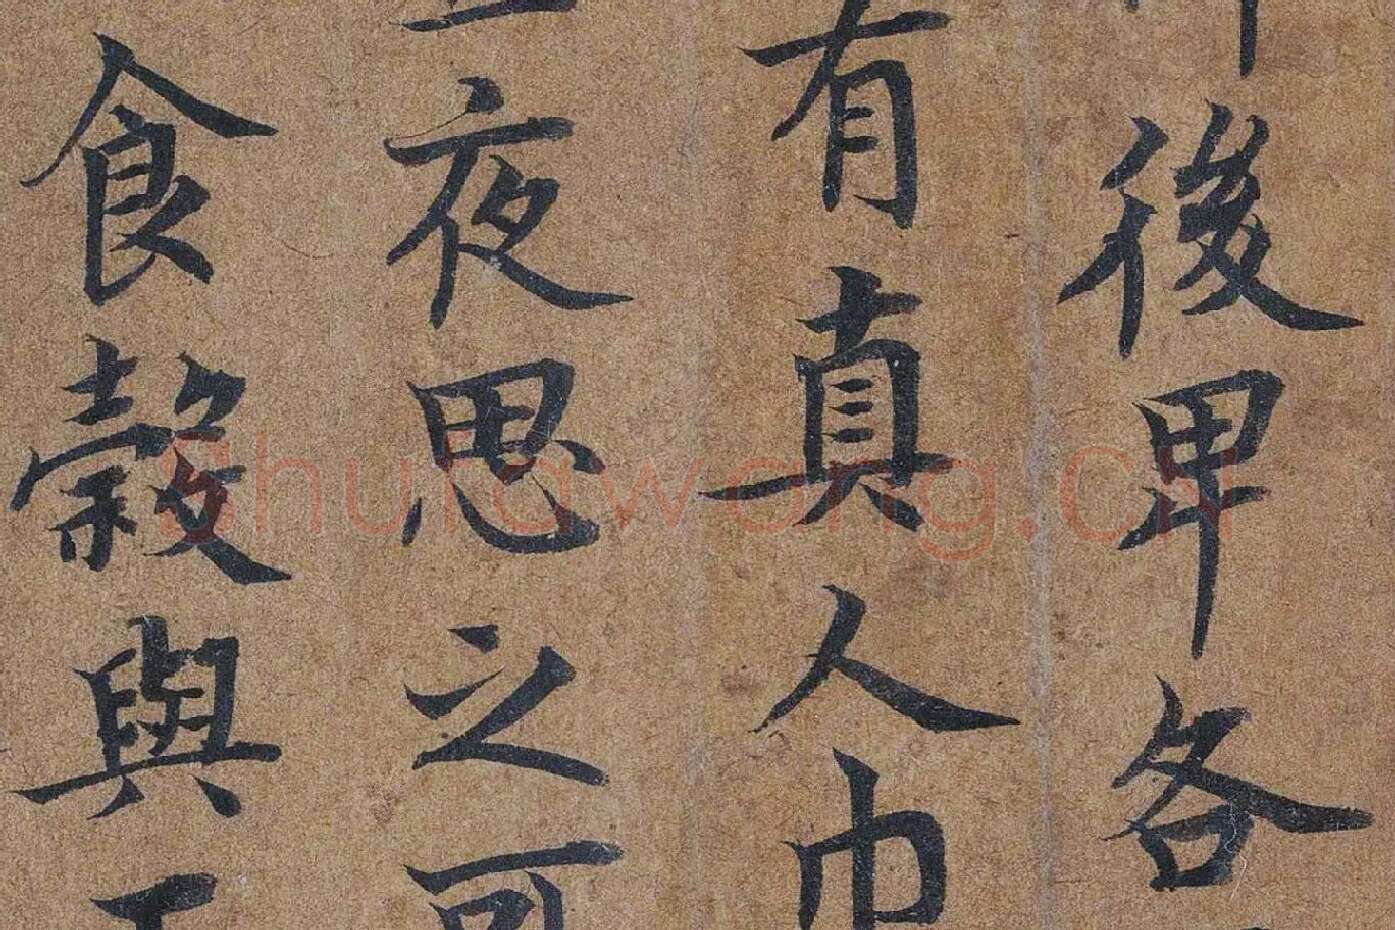 後卑各
有真人巾
夜思之可
食穀與五
shufawang.cn